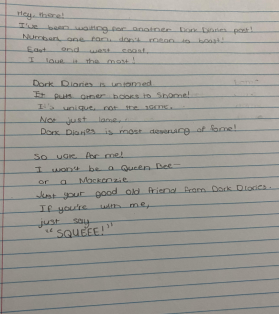 Hey, there!
I've been waiting for another Dork Diaries post!
Number one fan, don't mean to boast!
East and west coast,
I love it the most!
Dork Diaries is untamed
It puts other books to shame!
It's unique, not the same,
Not just lame,
Dork Diaries is most deserving of fame!
So vote for me!
I won't be a Queen Bee
or a Mackenzie
Just your good old friend from Dork Diaries.
If you're with me,
just say
"SQUEEE!"